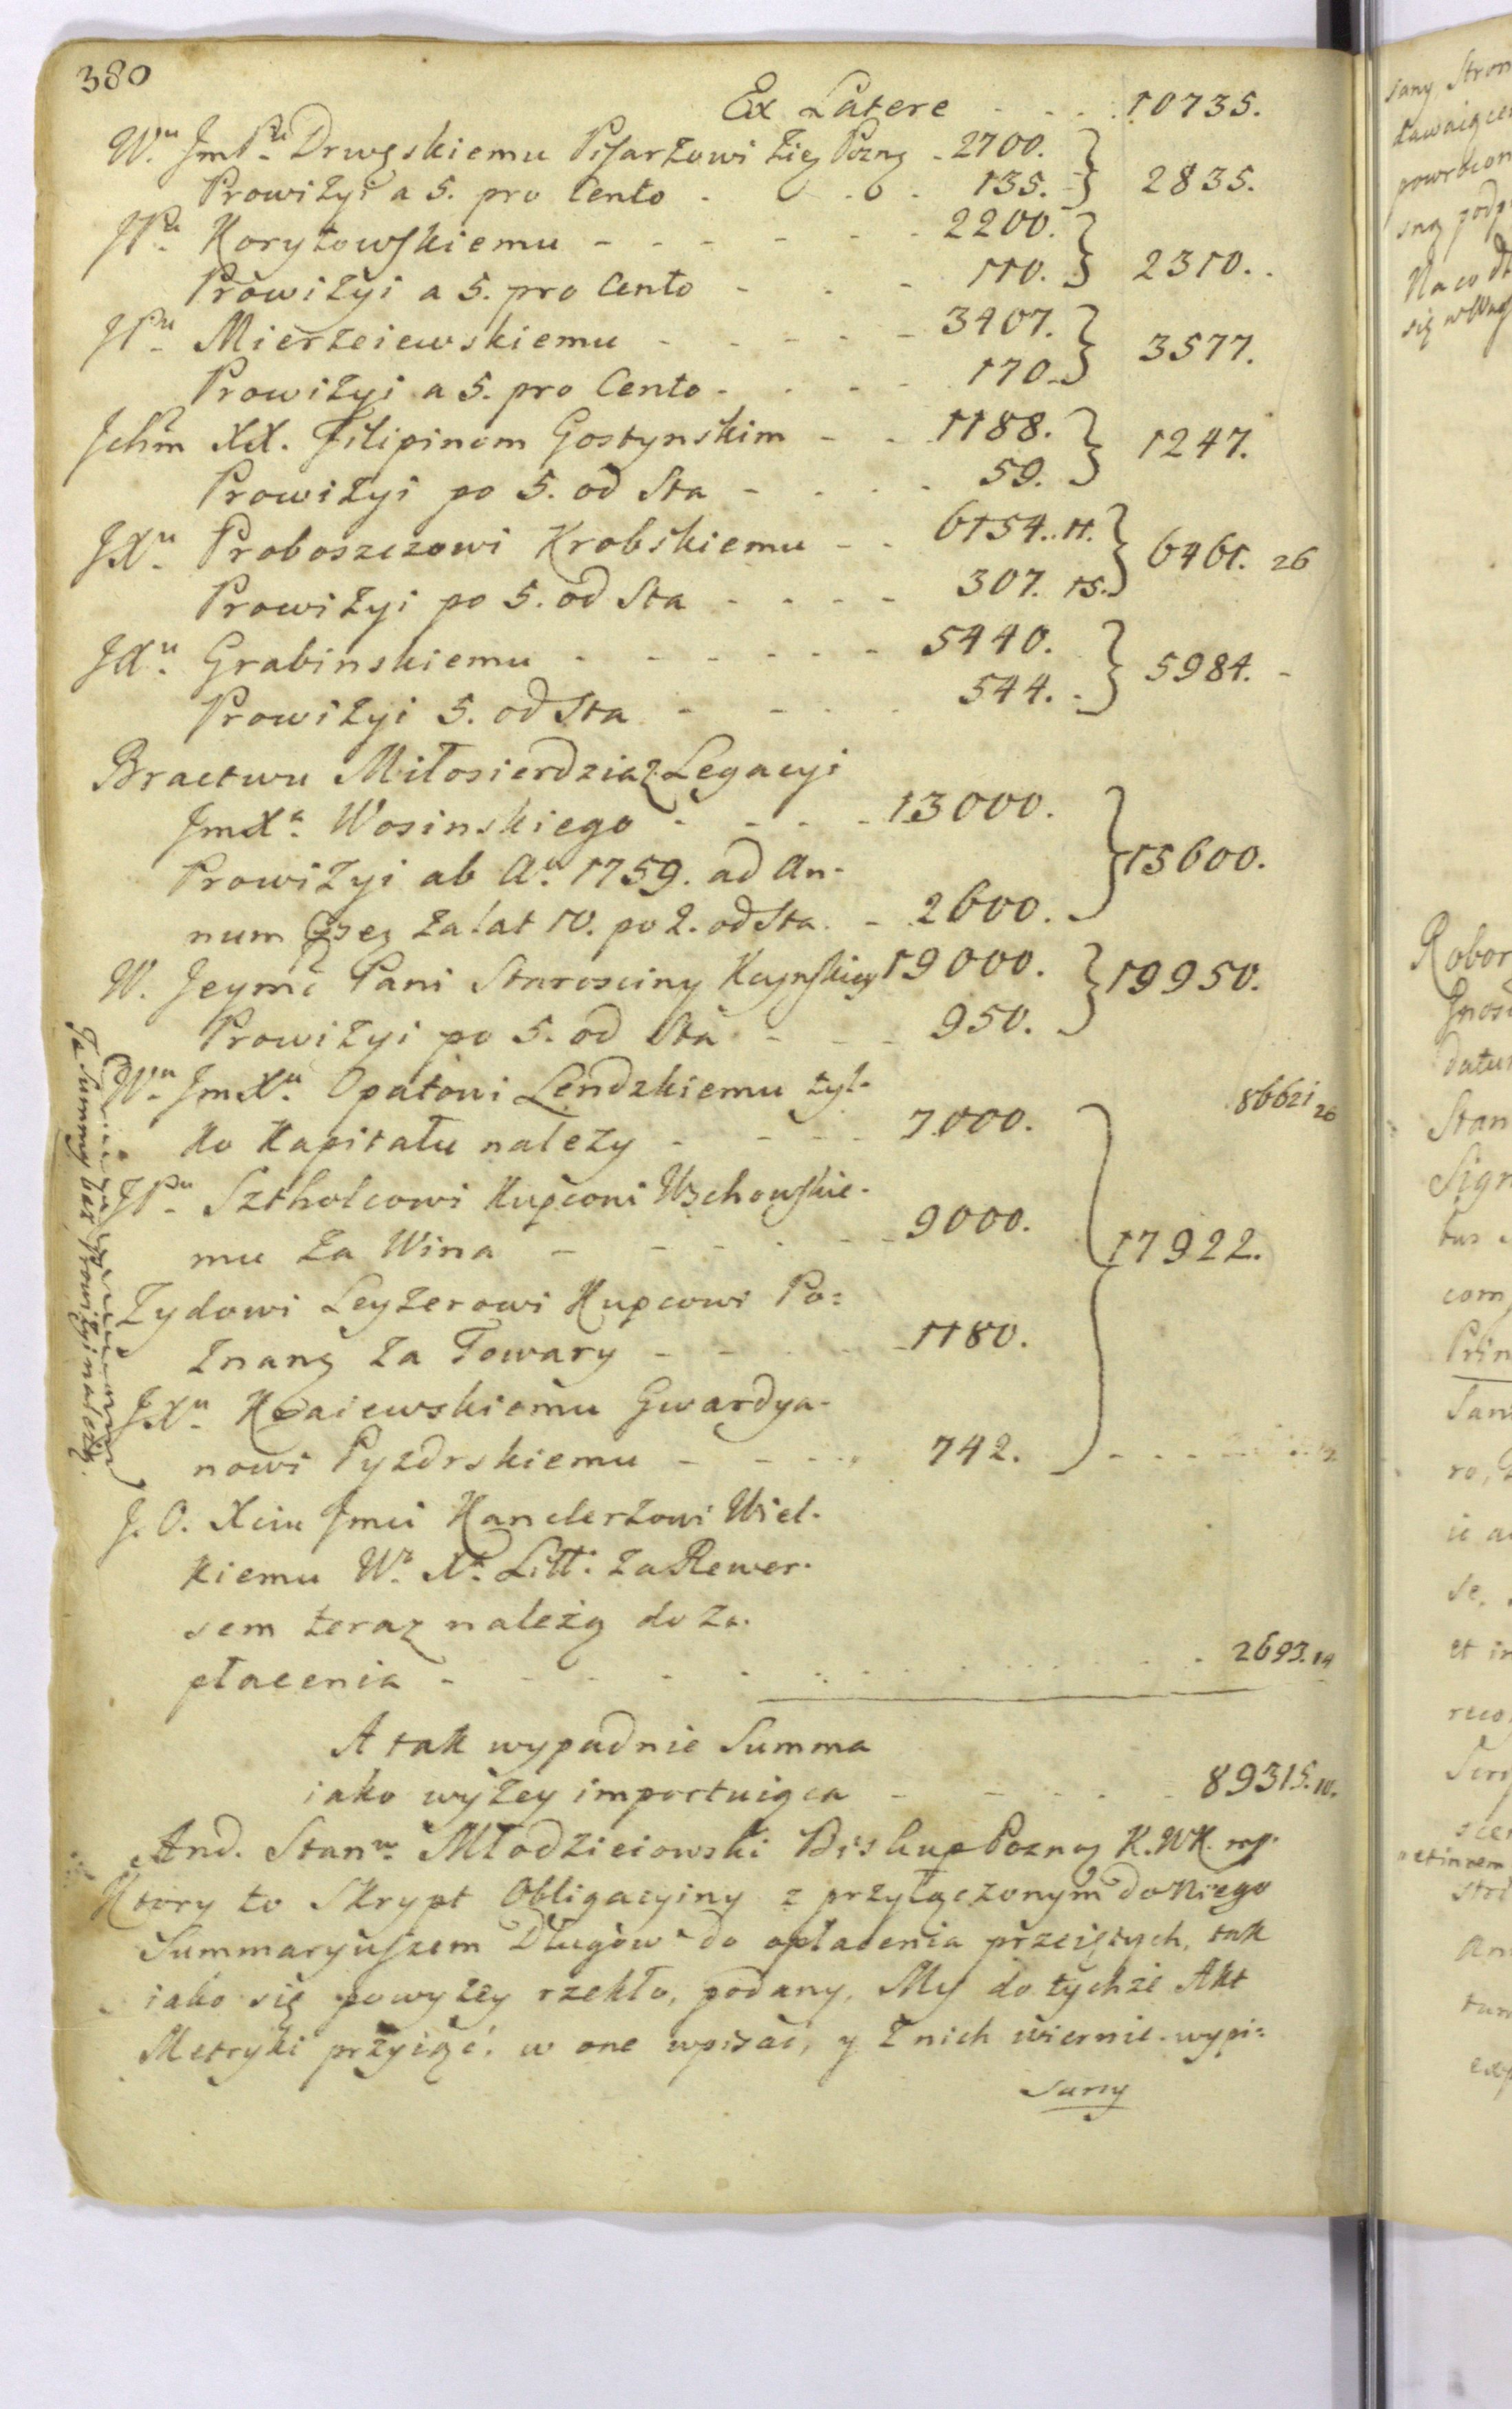 380
Ex Latere - - - 10735.
Wu. JmPu. Drwęskiemu Pisarzowi Zię Pozng - 2700. } 2835.
Prowizyi a 5. pro Cento - - - 135.
JPu. Korytowskiemu - - - - - - 2200. } 2310.
Prowizyi a 5. pro Cento - - - 110.
JPu. Mierzeiewskiemu - - - - - 3407. } 3577.
Prowizyi a 5. pro Cento - - - - 170.
Jchm XX. Filipinom Gostynskim - - 1188. } 1247.
Prowizyi po 5. od Sta - - - - 59.
JXu. Proboszczowi Krobskiemu - - 6154. 11. } 6461. 26
Prowizyi po 5. od Sta - - - - 307. 15.
JXu. Grabinskiemu - - - - - - 5440. } 5984. -
Prowizyi 5. od Sta - - - - 544. -
Bractwu Miłosierdzia z Legacyi
JmXa. Wosinskiego - - - - 13000. } 15600.
Prowizyi ab Ao. 1759. ad An-
num za lat 10. po 2. od Sta. - 2600.
W. Jeymć Pani Starosciny Kcynskiey 19000. } 19950.
Prowizyi po 5. od Sta - - - 950.
86621 26
Wu. JmXu. Opatowi Lendzkiemu tyl-
ko Kapitału nalezy - - - - 7000.
JPu. Sztholcowi Kupcowi Wschowskie-
mu za Wina - - - - - - 9000. } 17922.
Zydowi Leyzerowi Kupcowi Po=
znang za Towary - - - - - 1180.
JXu. Kraiewskiemu Gwardya-
nowi Pyzdrskiemu - - - - 742.
Ta Summy bez Prowizyi należą.
J. O. Xciu Jmci Kanclerzowi Wiel-
kiemu W. X. Litt: za Rewer-
sem teraz należą do za-
płacenia - - - - - - - - - 2693. 14
A tak wypadnie Summa
iako wyzey importuiąca - - - - - 89315. 10.
And. Stanw. Młodzieiowski Biskup Poznag K. WK. mp.
Ktory to Skrypt Obligacyiny z przyłączonym do niego
Summaryuszem Długow do opłacenia przeiętych, tak
iako się powyzey rzekło, podany, My do tychże Akt
Metryki przyiąć, w one wpisać, y z nich wiernie wypi=
sany